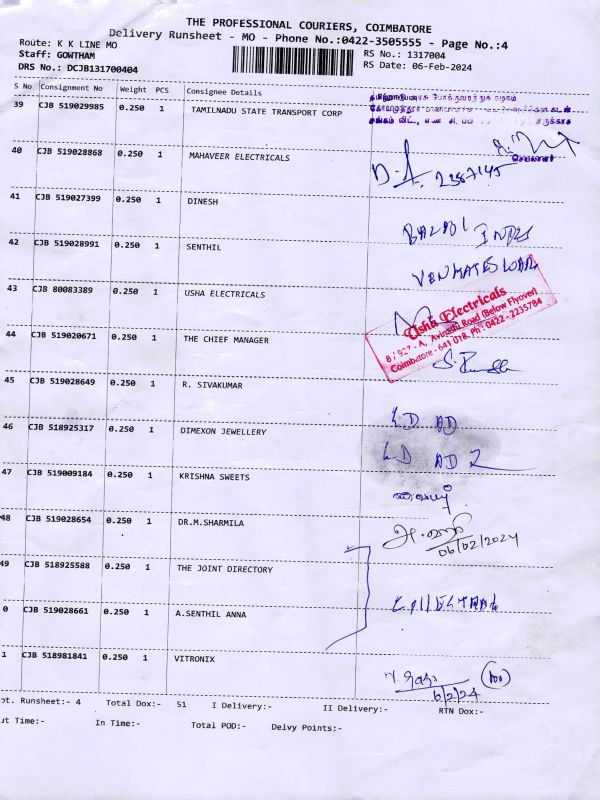 THE PROFESSIONAL COURIERS, COIMBATORE
Delivery Runsheet - MO - Phone No.:0422-3505555 - Page No.:4
Route: K K LINE MO
RS No.: 1317004
Staff: GOWTHAM
RS Date: 06-Feb-2024
DRS No.: DCJB131700404
S No Consignment No Weight PCS Consignee Details
39 CJB 519029985 0.250 1 TAMILNADU STATE TRANSPORT CORP
40 CJB 519028868 0.250 1 MAHAVEER ELECTRICALS
2387145
41 CJB 519027399 0.250 1 DINESH
42 CJB 519028991 0.250 1 SENTHIL
43 CJB 80083389 0.250 1 USHA ELECTRICALS
Usha Electricals
Avinashi Road (Below Flyover)
Coimbatore - 641 018. Ph : 0422 - 2235784
44 CJB 519020671 0.250 1 THE CHIEF MANAGER
45 CJB 519028649 0.250 1 R. SIVAKUMAR
46 CJB 518925317 0.250 1 DIMEXON JEWELLERY
47 CJB 519009184 0.250 1 KRISHNA SWEETS
48 CJB 519028654 0.250 1 DR.M.SHARMILA
06/02/2024
49 CJB 518925588 0.250 1 THE JOINT DIRECTORY
0 CJB 519028661 0.250 1 A.SENTHIL ANNA
1 CJB 518981841 0.250 1 VITRONIX
6/2/24
ot. Runsheet:- 4 Total Dox:- 51 I Delivery:- II Delivery:- RTN Dox:-
ut Time:- In Time:- Total POD:- Delvy Points:-